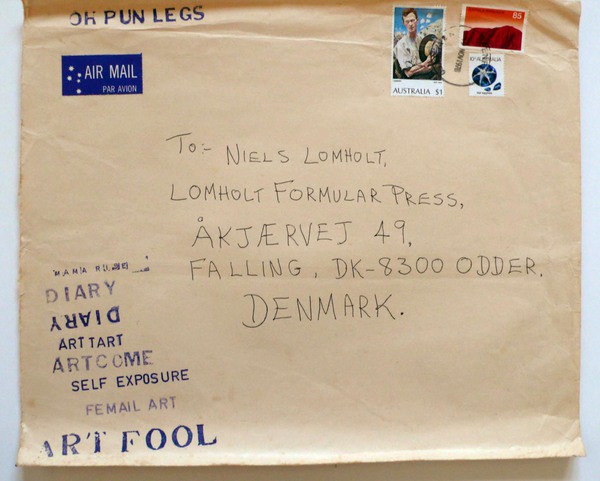 OH PUN LEGS
AIR MAIL
PAR AVION
AUSTRALIA $1
85
AUSTRALIA
To:- NIELS LOMHOLT,
LOMHOLT FORMULAR PRESS,
ÅKJÆRVEJ 49,
FALLING, DK-8300 ODDER.
DENMARK.
MAMA
DIARY
DIARY
ART TART
ARTCOME
SELF EXPOSURE
FEMAIL ART
ART FOOL